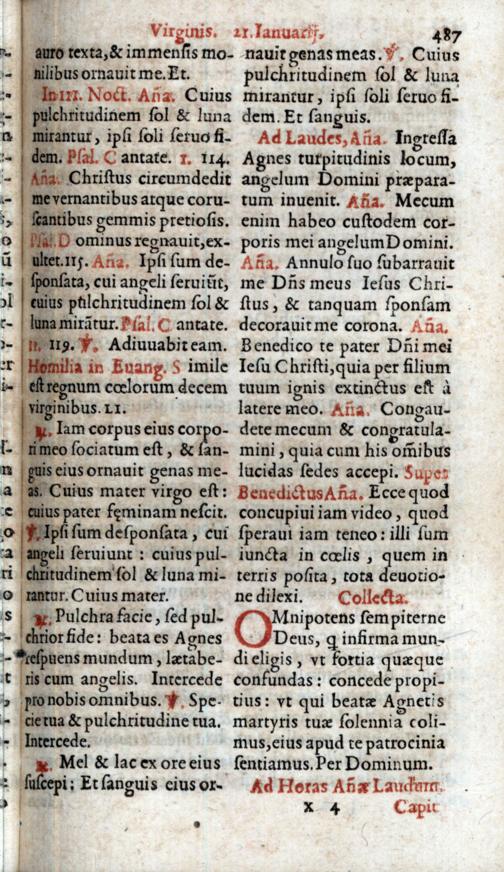 Virginis. 21. Ianuarij. 487
auro texta, & immensis mo-
nilibus ornauit me. Et.
In III. Noct. Aña. Cuius
pulchritudinem sol & luna
mirantur, ipsi soli seruo fi-
dem. Psal. C antate. 1. 114.
Aña. Christus circumdedit
me vernantibus atque coru-
scantibus gemmis pretiosis.
Psal. D ominus regnauit, ex-
ultet. 115. Aña. Ipsi sum de-
sponsata, cui angeli seruiũt,
cuius pulchritudinem sol &
luna mirãtur. Psal. C antate.
11. 119. ℣. Adiuuabit eam.
Homilia in Euang. S imile
est regnum cœlorum decem
virginibus. LI.
℟. Iam corpus eius corpo-
ri meo sociatum est, & san-
guis eius ornauit genas me-
as. Cuius mater virgo est:
cuius pater fęminam nescit.
℣. Ipsi sum desponsata, cui
angeli seruiunt: cuius pul-
chritudinem sol & luna mi-
rantur. Cuius mater.
℟. Pulchra facie, sed pul-
chrior fide: beata es Agnes
respuens mundum, lætabe-
ris cum angelis. Intercede
pro nobis omnibus. ℣. Spe-
cie tua & pulchritudine tua.
Intercede.
℟. Mel & lac ex ore eius
suscepi; Et sanguis eius or-
nauit genas meas. ℣. Cuius
pulchritudinem sol & luna
mirantur, ipsi soli seruo fi-
dem. Et sanguis.
Ad Laudes, Aña. Ingressa
Agnes turpitudinis locum,
angelum Domini præpara-
tum inuenit. Aña. Mecum
enim habeo custodem cor-
poris mei angelum Domini.
Aña. Annulo suo subarrauit
me Dñs meus Iesus Chri-
stus, & tanquam sponsam
decorauit me corona. Aña.
Benedico te pater Dñi mei
Iesu Christi, quia per filium
tuum ignis extinctus est à
latere meo. Aña. Congau-
dete mecum & congratula-
mini, quia cum his om̃ibus
lucidas sedes accepi. Super
Benedictus Aña. Ecce quod
concupiui iam video, quod
speraui iam teneo: illi sum
iuncta in cœlis, quem in
terris posita, tota deuotio-
ne dilexi. Collecta.
OMnipotens sempiterne
Deus, q infirma mun-
di eligis, vt fortia quæque
confundas: concede propi-
tius: vt qui beatæ Agnetis
martyris tuæ solennia coli-
mus, eius apud te patrocinia
sentiamus. Per Dominum.
Ad Horas Añæ Laudum.
X 4 Capit